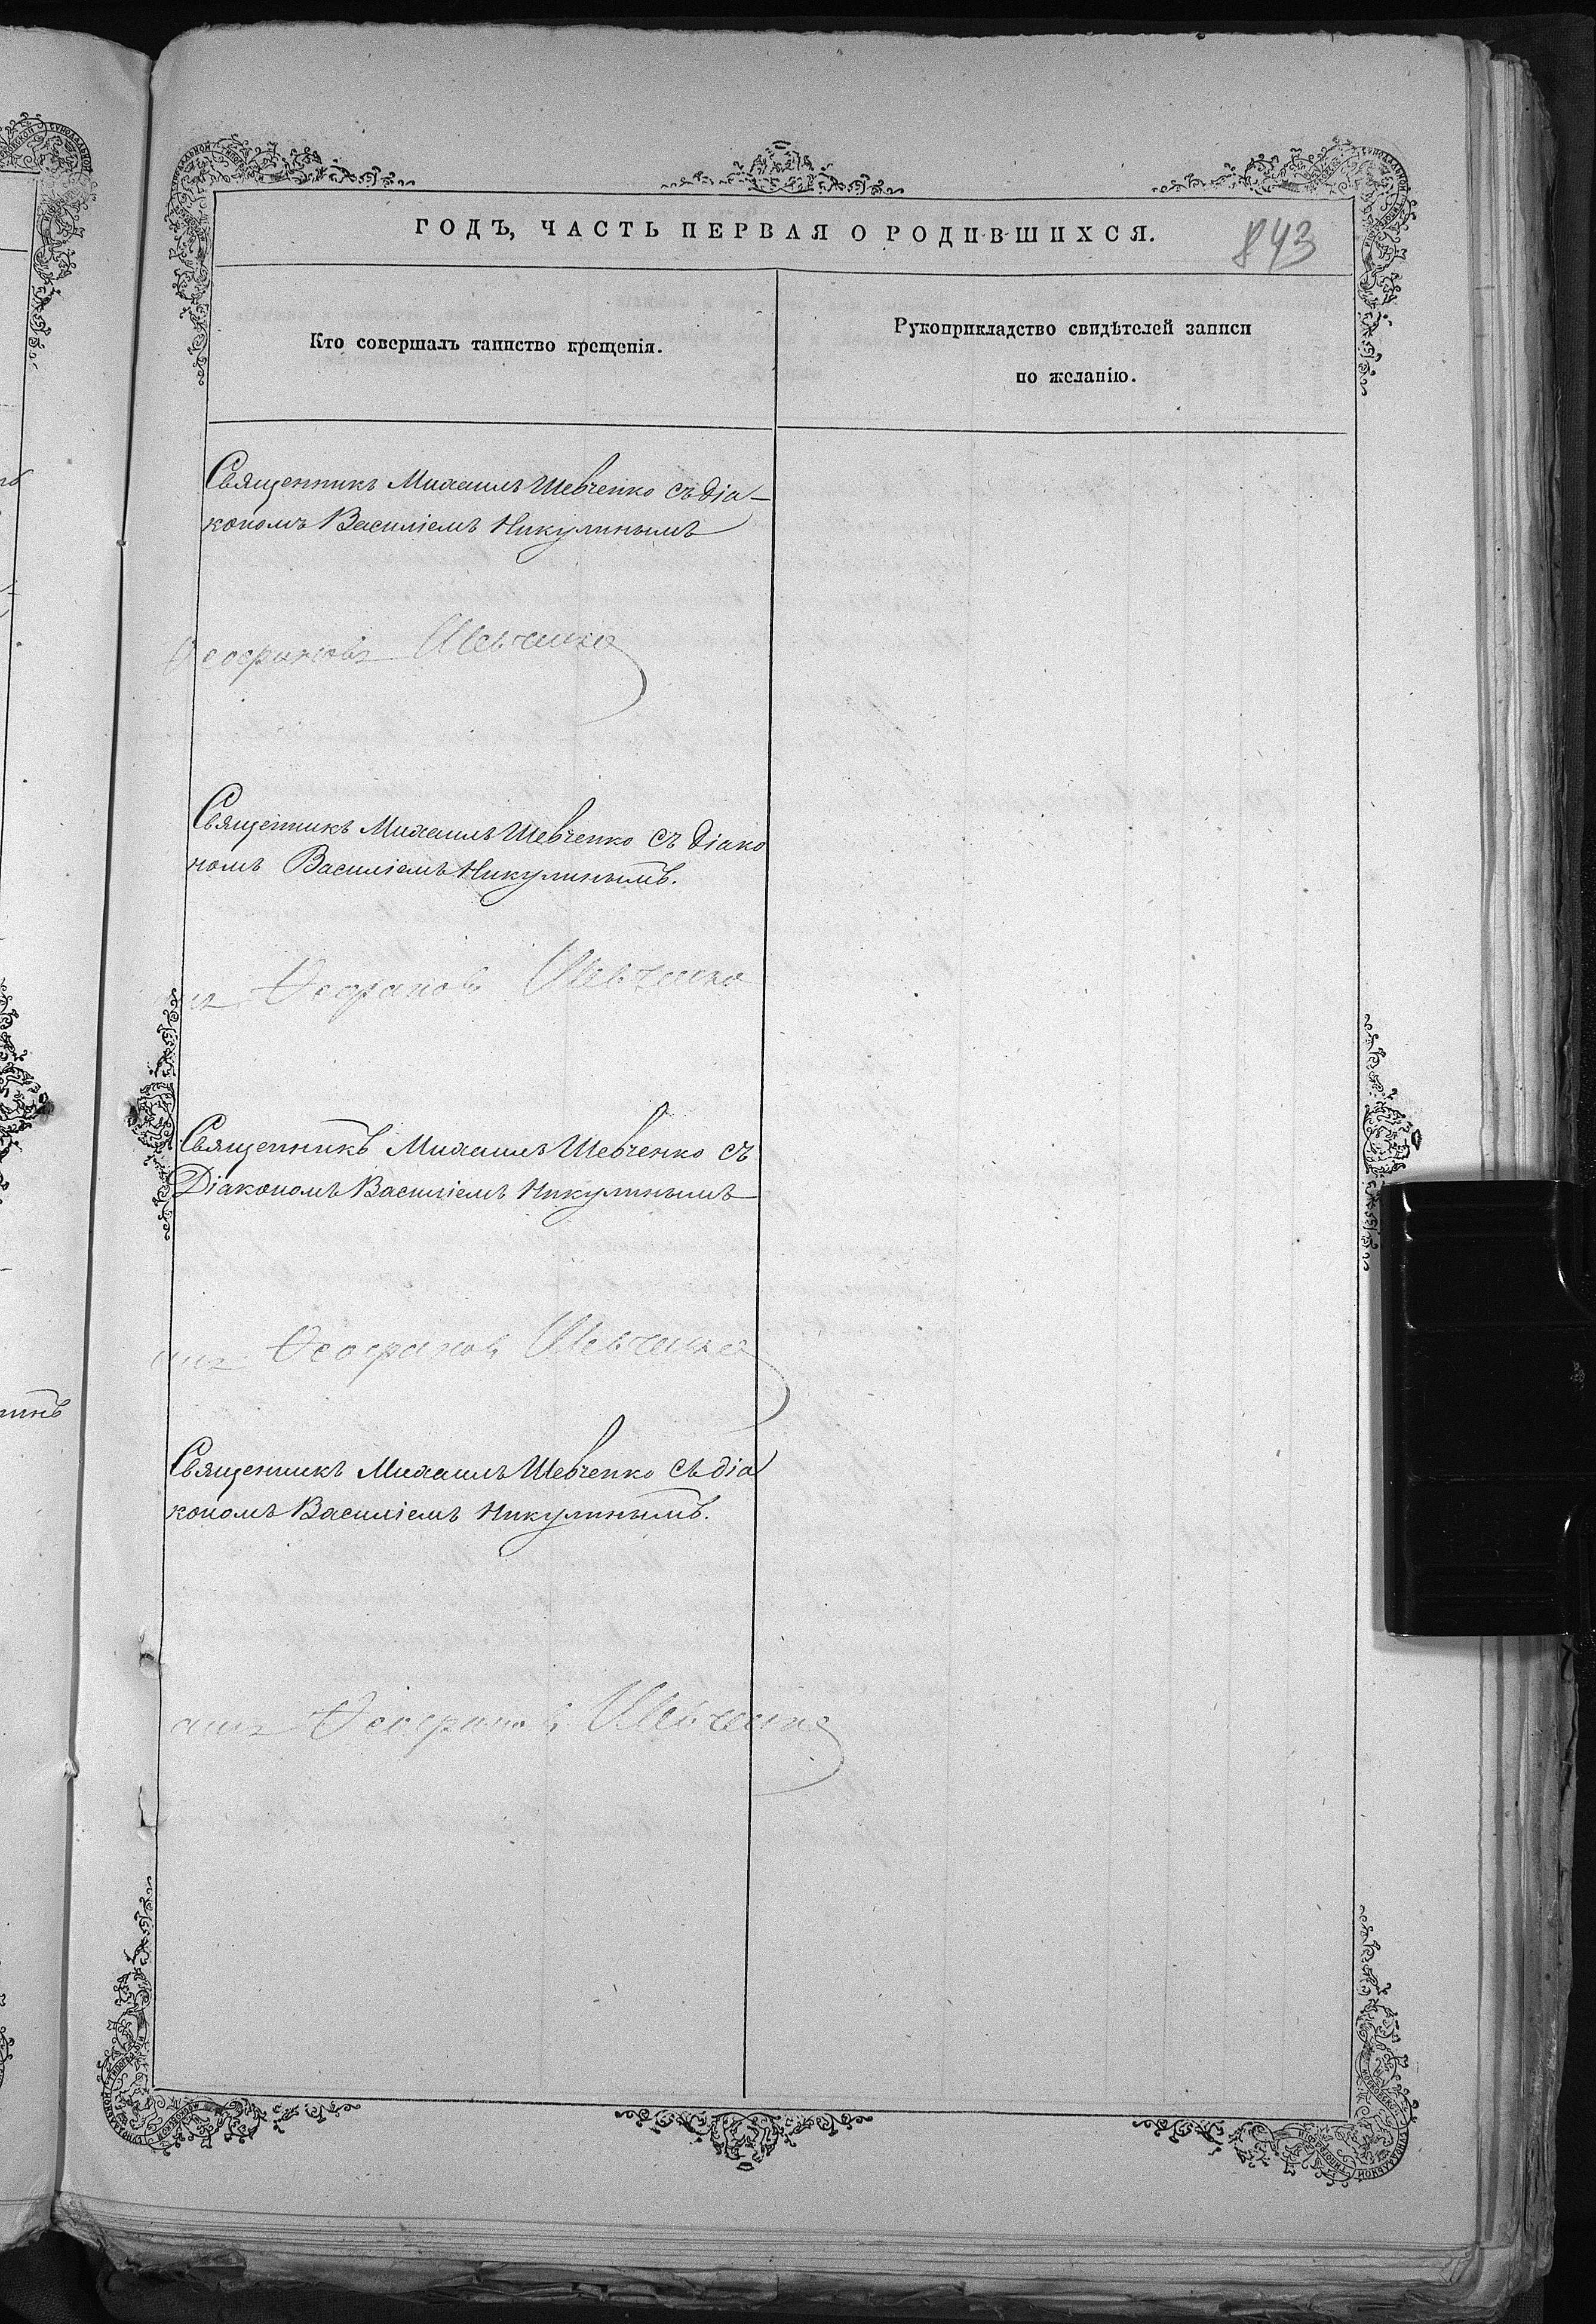 ГОДЪ, ЧАСТЬ ПЕРВАЯ О РОДИВШИХСЯ.
843
Кто совершалъ таинство крещенія.
Рукоприкладство свидѣтелей записи
по желанію.
Священникъ Михаилъ Шевченко съ діа-
кономъ Василіемъ Никулинымъ
Ѳеофановъ Шевченко
Священникъ Михаилъ Шевченко съ діако
номъ Василіемъ Никулинымъ.
Ѳеофановъ Шевченко
Священникъ Михаилъ Шевченко съ
Діакономъ Василіемъ Никулинымъ
Ѳеофановъ Шевченко
Священникъ Михаилъ Шевченко съ діа
кономъ Василіемъ Никулинымъ.
Ѳеофановъ Шевченко